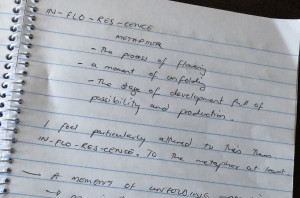 IN-FLO-RES-CENCE
METAPHOR
- The process of flowering
- a moment of unfolding
- The stage of development full of
possibility and production.
I feel particularly attuned to this
IN-FLO-RES-CENCE, to the metaphor at least
- A MOMENT OF UNFOLDING